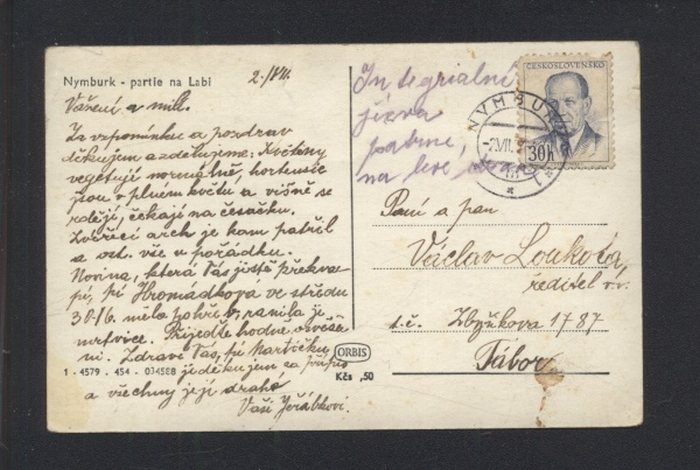 Nymburk - partie na Labi
2./VII.
Vážení a milí.
Za vzpomínku a pozdrav
děkujem a sdělujeme: Květiny
vegetují normálně, hortensie
jsou v plném květu a višně se
rdějí, čekají na česáčku.
Zvěřecí arch je kam patřil
a ost. vše v pořádku.
Novina, která Vás jistě překva-
pí, pí Hromádková ve středu
30./6. měla pohřeb, ranila ji
mrtvice. Přijeďte hodně osvěže-
ni. Zdraví Vás, pí Martičku,
je děkujem za
a všechny její drahé
Vaši Jeřábkovi.
1 - 4579 - 454 - 034588
ORBIS
Kčs ,50
Integrialní
jizva
na levé
NYMBURK
-2.VII.
ČESKOSLOVENSKO
30h
Paní a pan
Václav Loukota,
ředitel v.v.
t.č. Zbyňkova 1787
Tábor